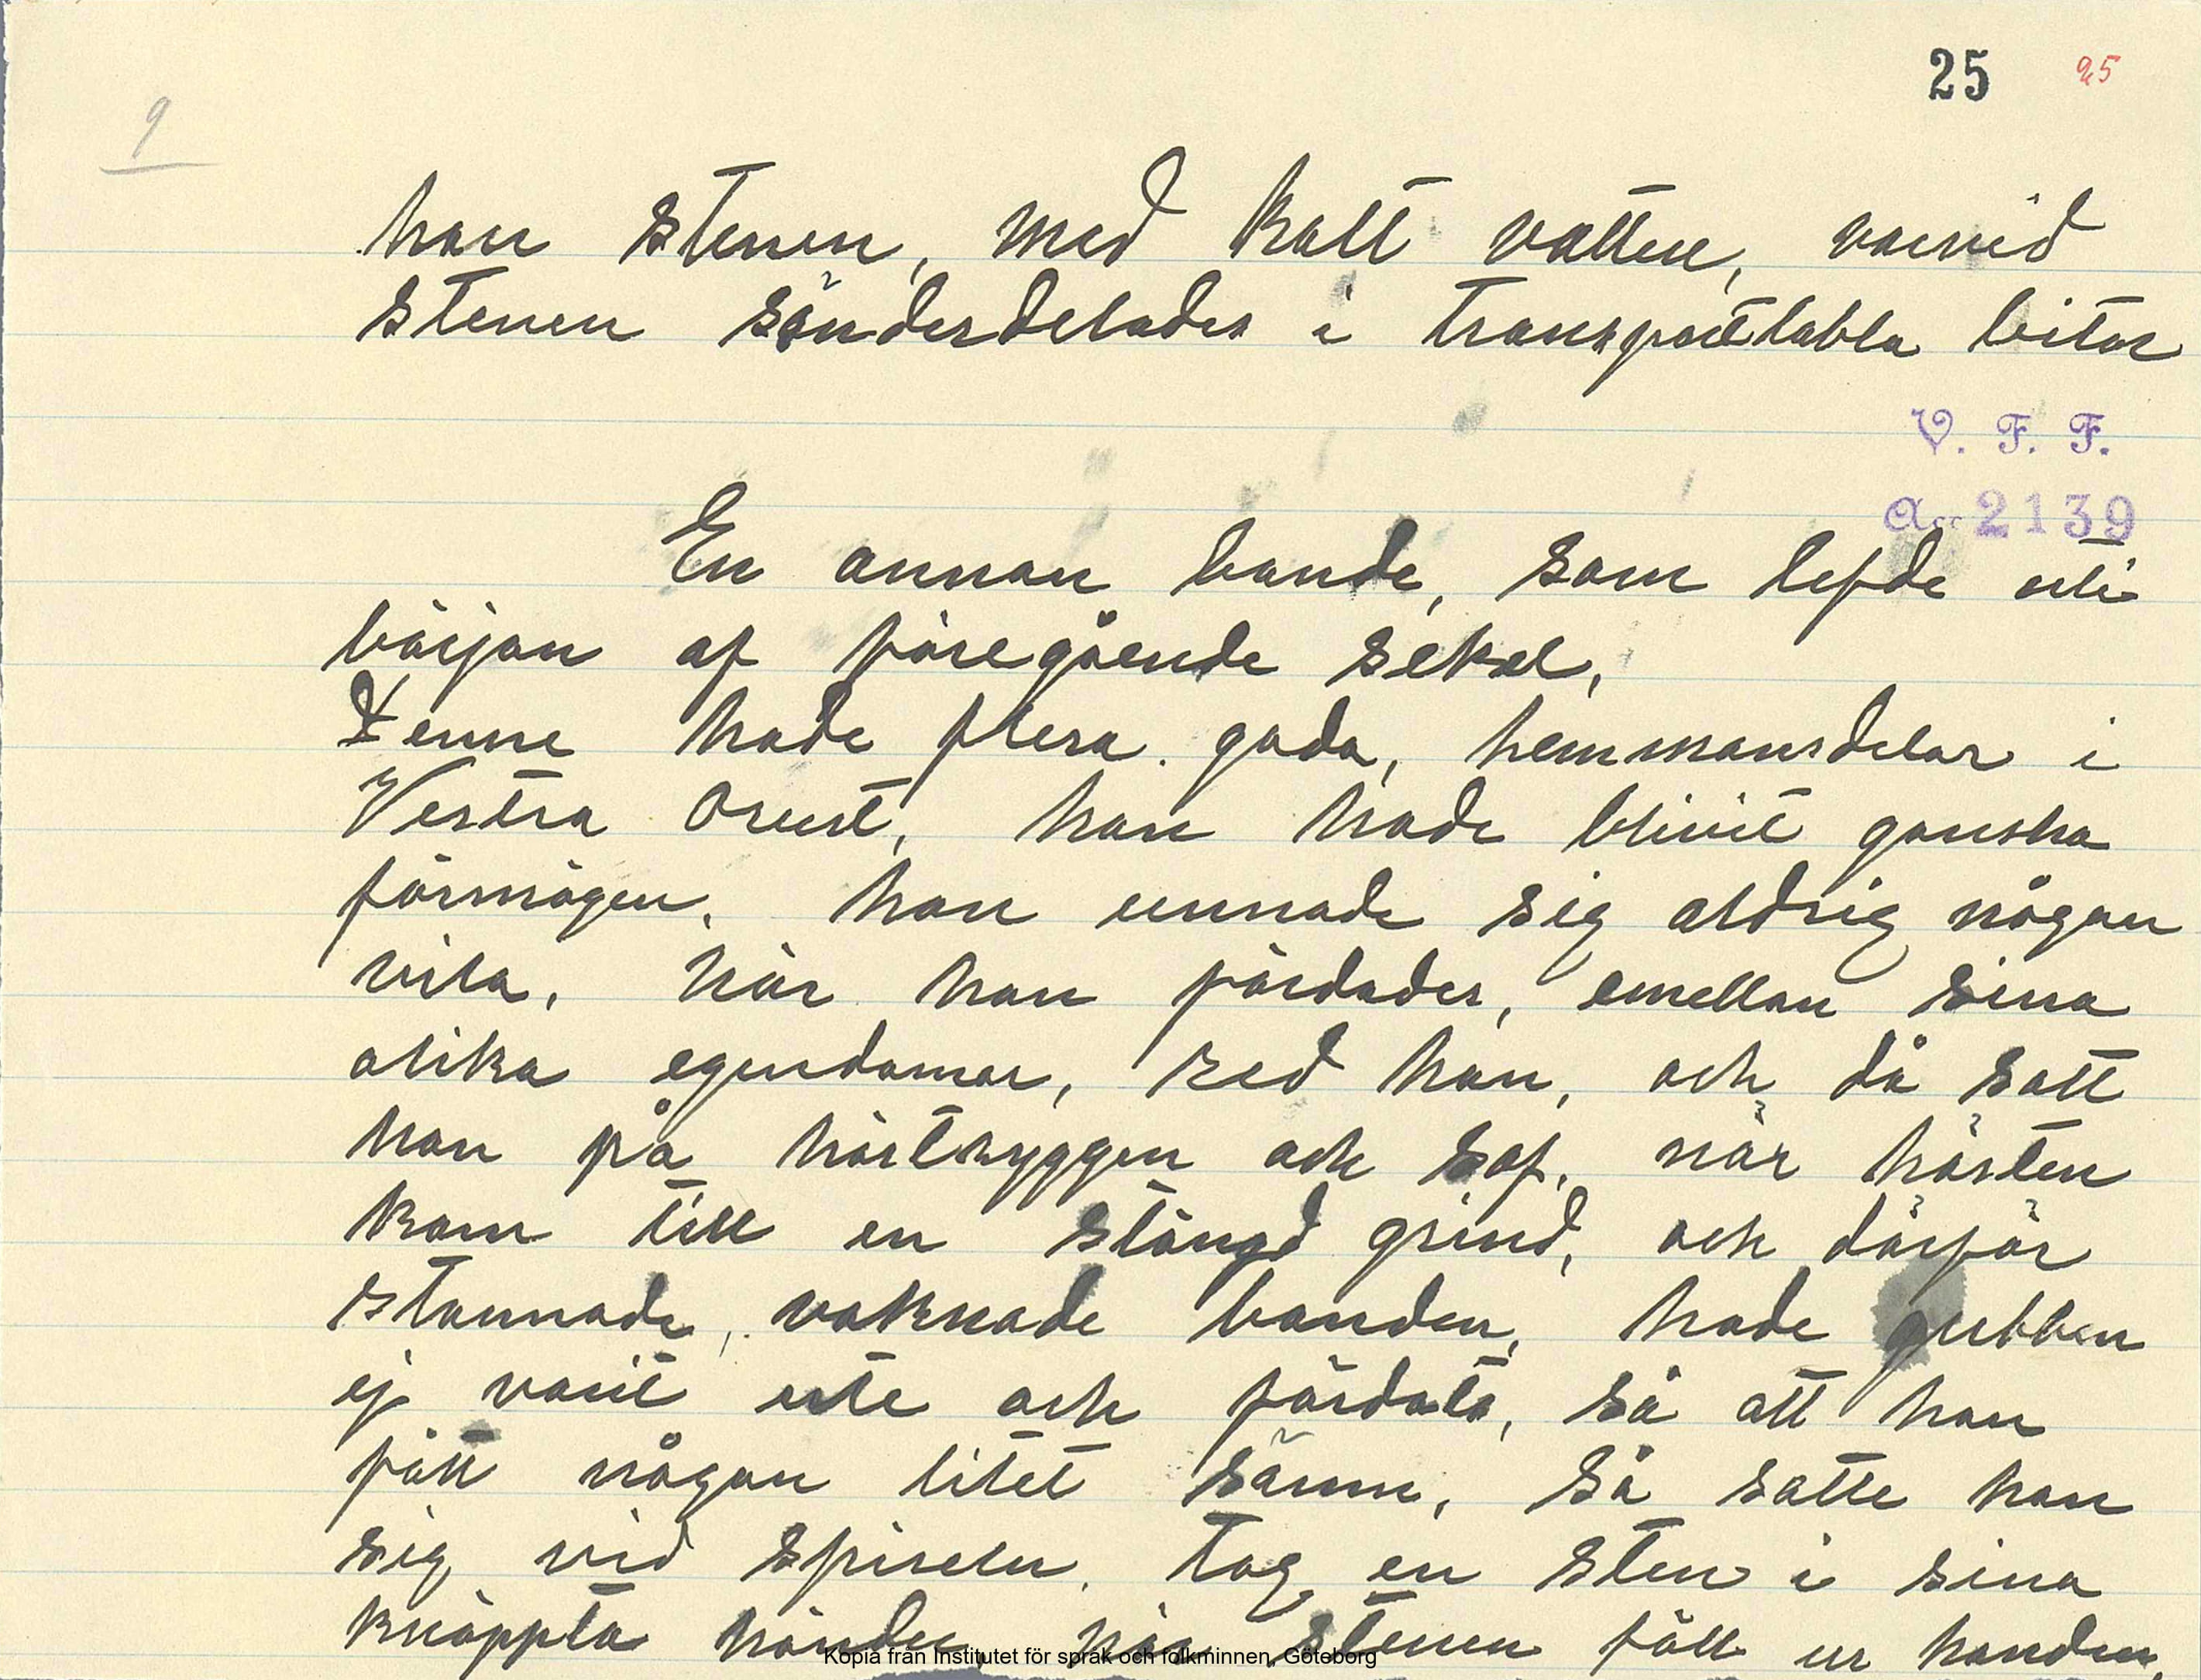 25 25
9
han stenen, med kallt vatten, varvid
stenen sönderdelades i transportabla bitar
V. F. F.
Acc 2139
En annan bonde, som lefde uti
början af föregående sekel,
Denne hade flera goda, hemmansdelar i
Vestra Orust, han hade blivit ganska
förmögen. han unnade sig aldrig någon
vila. När han färdades, emellan sina
olika egendomar, red han, och då satt
han på hästryggen och sof. när hästen
kom till en stängd grind, och därför
stannade, vaknade bonden, hade gubben
ej varit ute och färdats, så att han
fått någon litet sömn, så satte han
sig vid spiseln. tog en sten i sina
knäppta händer när stenen föll ur handen,
Kopia från Institutet för språk och folkminnen, Göteborg